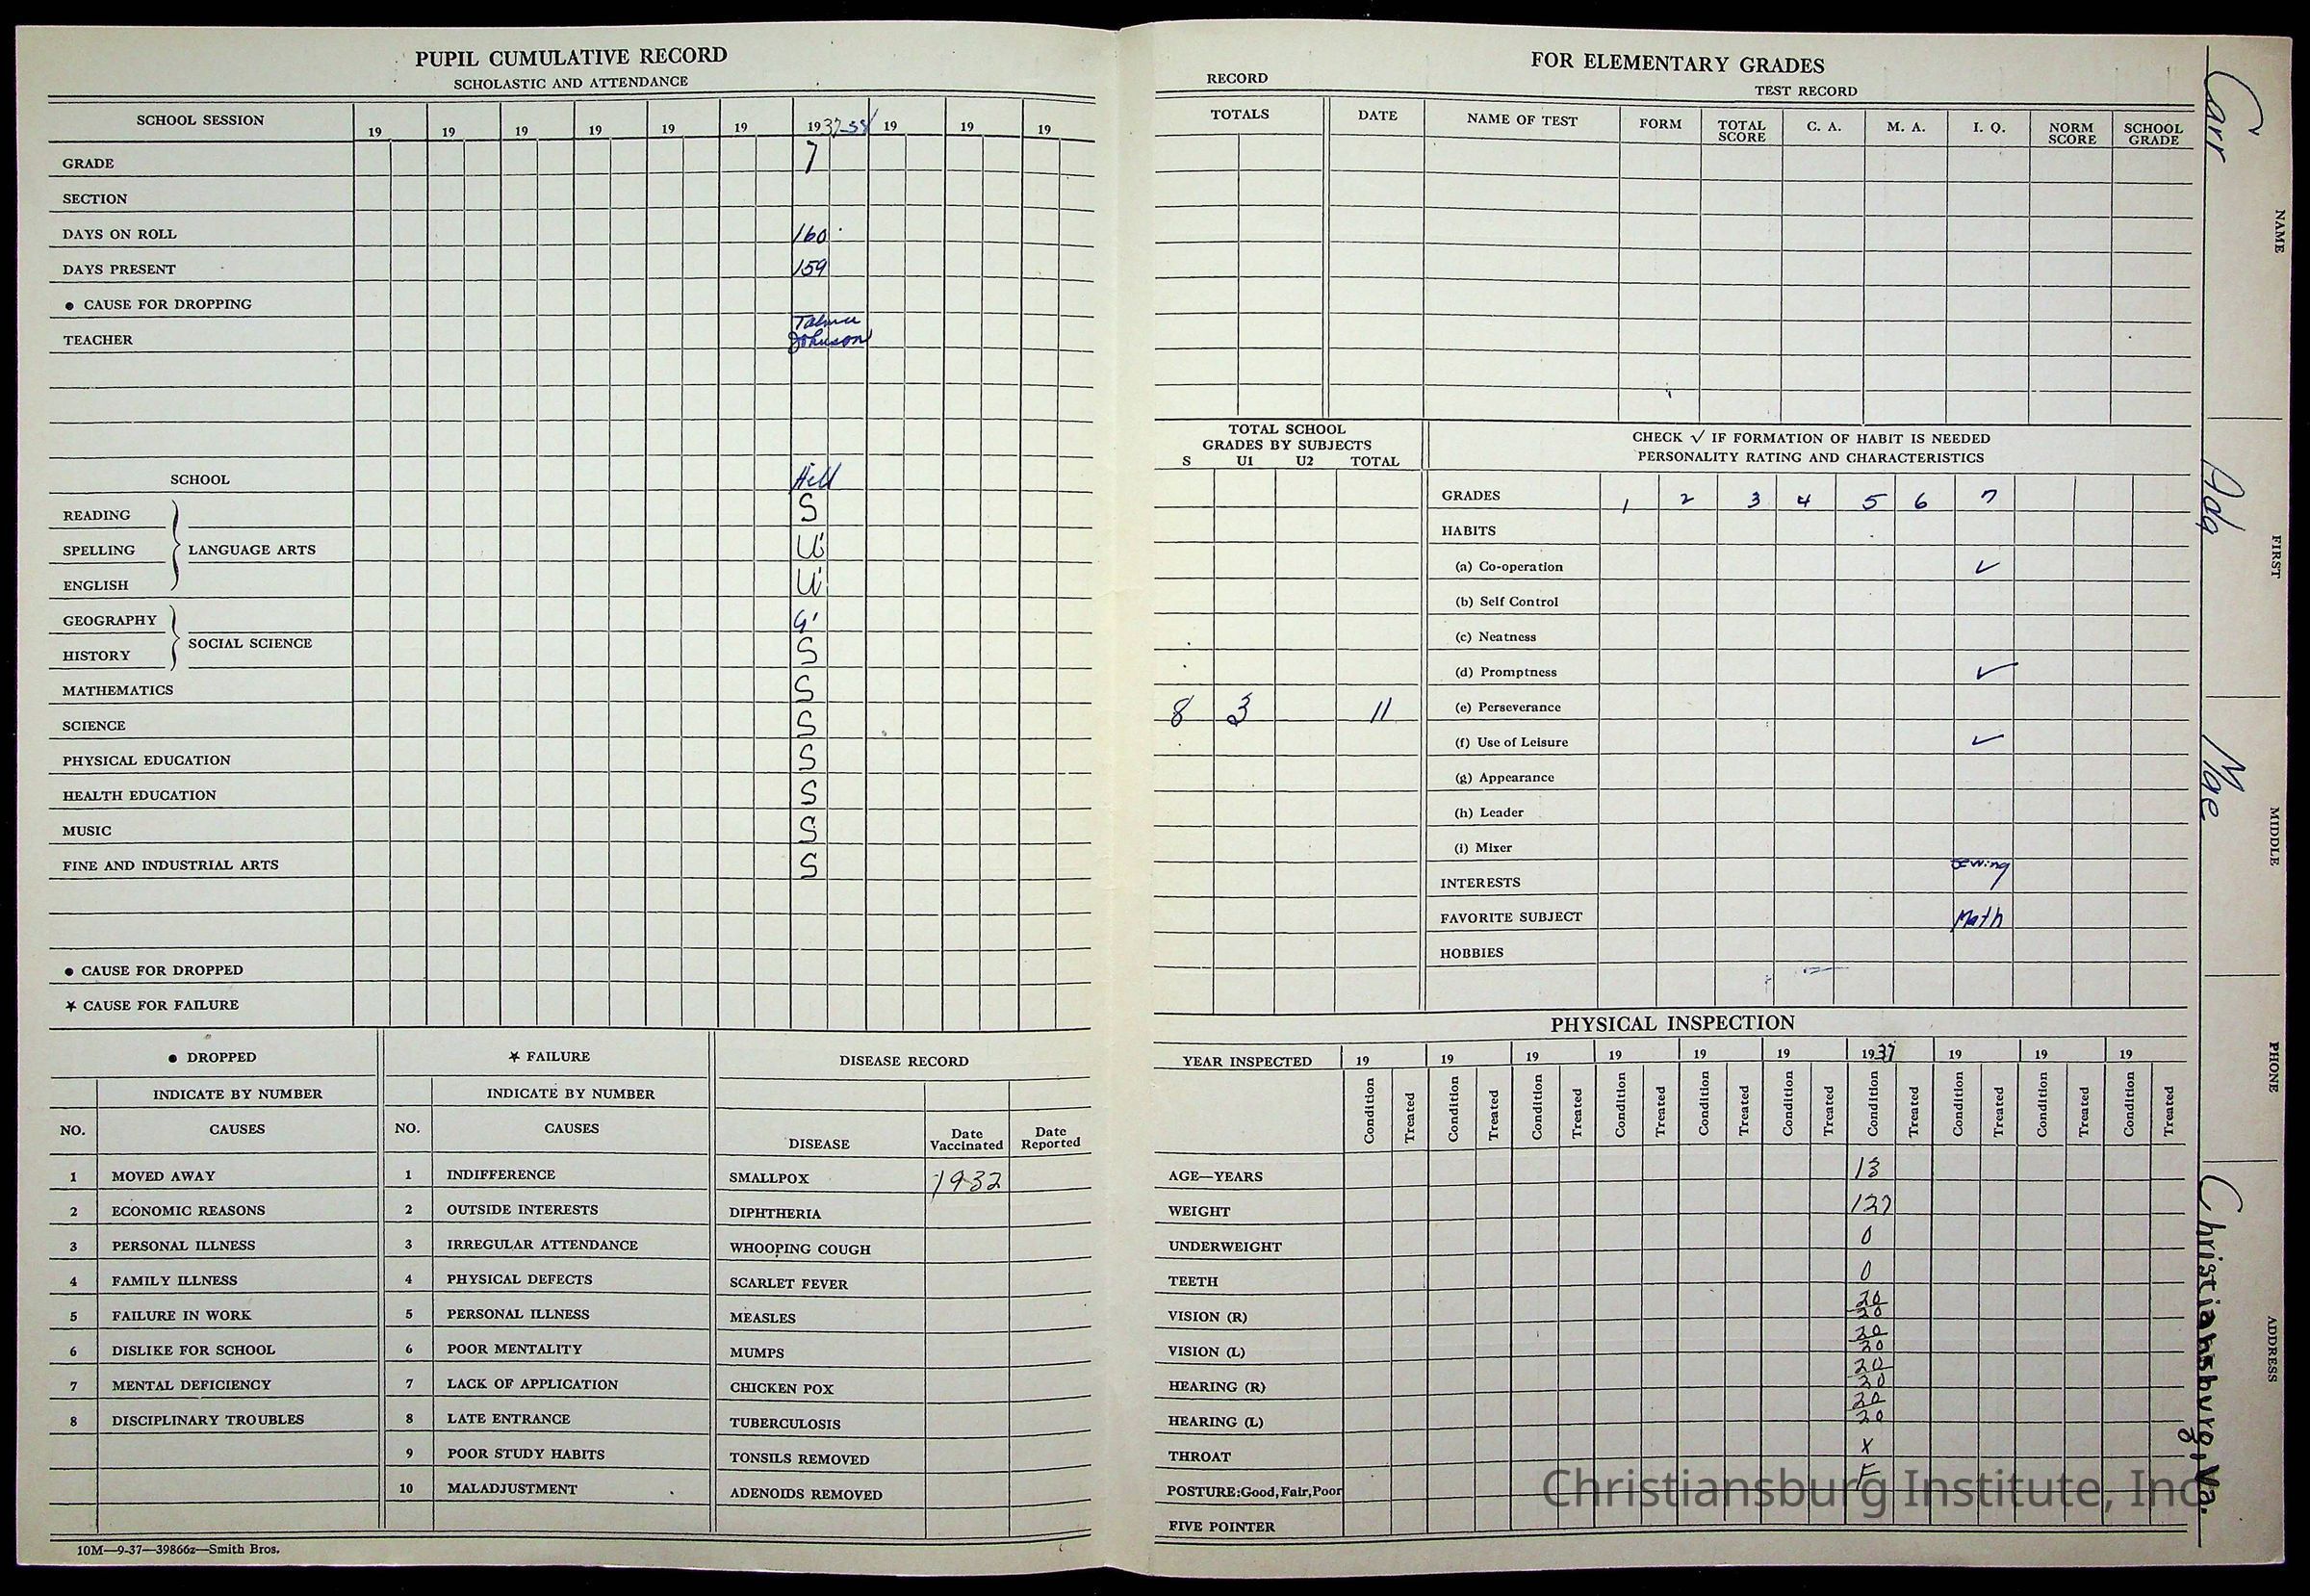 PUPIL CUMULATIVE RECORD
SCHOLASTIC AND ATTENDANCE
SCHOOL SESSION 19 19 19 19 19 19 1937-38 19 19 19
GRADE 7
SECTION
DAYS ON ROLL 160
DAYS PRESENT 159
● CAUSE FOR DROPPING
TEACHER Johnson
SCHOOL Hill
READING S
SPELLING LANGUAGE ARTS U
ENGLISH U
GEOGRAPHY
SOCIAL SCIENCE
HISTORY S
MATHEMATICS S
SCIENCE S
PHYSICAL EDUCATION S
HEALTH EDUCATION S
MUSIC S
FINE AND INDUSTRIAL ARTS S
● CAUSE FOR DROPPED
★ CAUSE FOR FAILURE
● DROPPED
INDICATE BY NUMBER
NO. CAUSES
1 MOVED AWAY
2 ECONOMIC REASONS
3 PERSONAL ILLNESS
4 FAMILY ILLNESS
5 FAILURE IN WORK
6 DISLIKE FOR SCHOOL
7 MENTAL DEFICIENCY
8 DISCIPLINARY TROUBLES
★ FAILURE
INDICATE BY NUMBER
NO. CAUSES
1 INDIFFERENCE
2 OUTSIDE INTERESTS
3 IRREGULAR ATTENDANCE
4 PHYSICAL DEFECTS
5 PERSONAL ILLNESS
6 POOR MENTALITY
7 LACK OF APPLICATION
8 LATE ENTRANCE
9 POOR STUDY HABITS
10 MALADJUSTMENT
DISEASE RECORD
DISEASE Date Vaccinated Date Reported
SMALLPOX 1932
DIPHTHERIA
WHOOPING COUGH
SCARLET FEVER
MEASLES
MUMPS
CHICKEN POX
TUBERCULOSIS
TONSILS REMOVED
ADENOIDS REMOVED
10M—9-37—39866z—Smith Bros.
FOR ELEMENTARY GRADES
RECORD
TEST RECORD
TOTALS DATE NAME OF TEST FORM TOTAL SCORE C. A. M. A. I. Q. NORM SCORE SCHOOL GRADE
TOTAL SCHOOL
GRADES BY SUBJECTS
S U1 U2 TOTAL
8 3 11
CHECK √ IF FORMATION OF HABIT IS NEEDED
PERSONALITY RATING AND CHARACTERISTICS
GRADES 1 2 3 4 5 6 7
HABITS
(a) Co-operation ✓
(b) Self Control
(c) Neatness
(d) Promptness ✓
(e) Perseverance
(f) Use of Leisure ✓
(g) Appearance
(h) Leader
(i) Mixer
INTERESTS sewing
FAVORITE SUBJECT Math
HOBBIES
PHYSICAL INSPECTION
YEAR INSPECTED 19 19 19 19 19 19 1937 19 19 19
Condition Treated Condition Treated Condition Treated Condition Treated Condition Treated Condition Treated Condition Treated Condition Treated Condition Treated Condition Treated
AGE—YEARS 13
WEIGHT 127
UNDERWEIGHT 0
TEETH 0
VISION (R) 20/20
VISION (L) 20/20
HEARING (R) 20/20
HEARING (L) 20/20
THROAT x
POSTURE:Good,Fair,Poor F
FIVE POINTER
NAME Carr
FIRST Ada
MIDDLE Mae
PHONE
ADDRESS Christiansburg, Va.
Christiansburg Institute, Inc.